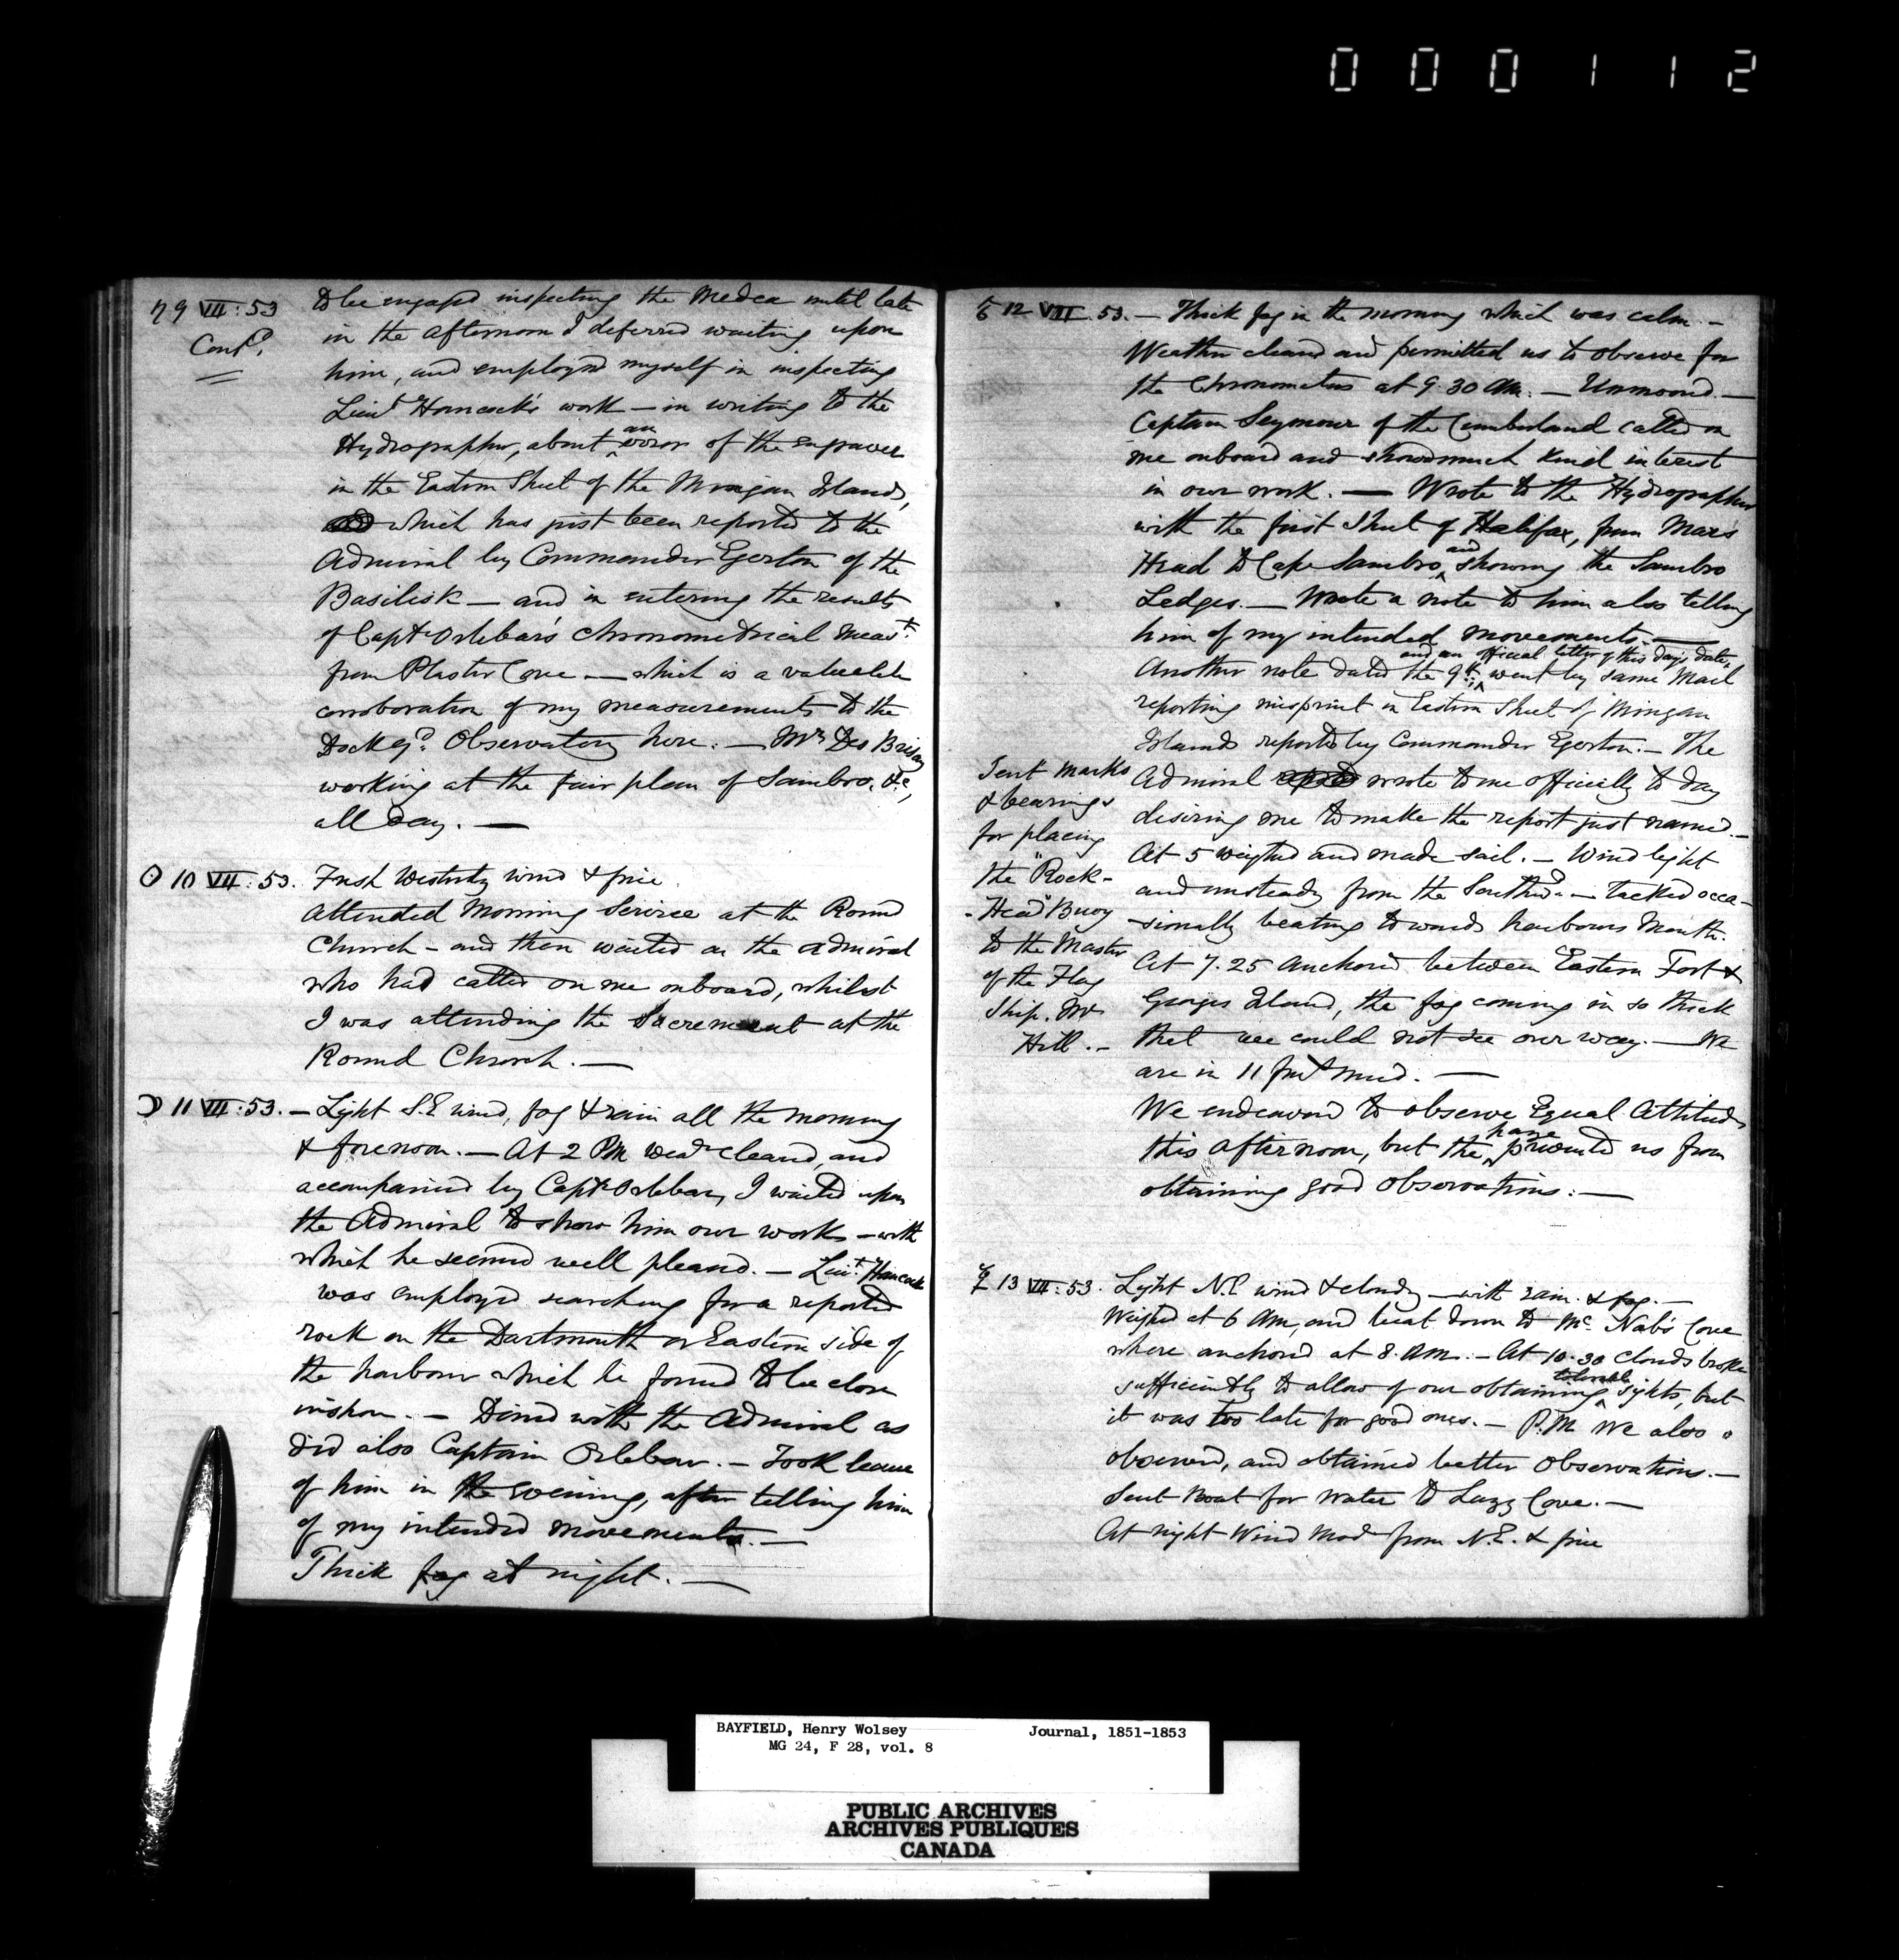 000112
♄ 9 VII : 53 to be engaged inspecting the Medea until late
Contd. in the afternoon I deferred waiting upon
him, and employed myself in inspecting
Lieut Hancock's work — in writing to the
Hydrographer, about an error of the engraver
in the Eastern Sheet of the Mingan Islands,
which has just been reported to the
Admiral by Commander Egerton of the
Basilisk — and in entering the results
of Captn Orlebar's Chronometrical meast.
from Plaster Cove — which is a valuable
corroboration of my measurements to the
Dock Yd. Observatory here. — Mr Des Brisay
working at the fair plan of Sambro, &c,
all day. —
☉ 10 VII : 53. Fresh Westerly wind & fine
Attended Morning Service at the Round
Church — and then waited on the Admiral
who had called on me onboard, whilst
I was attending the Sacrement at the
Round Church. —
☽ 11 VII : 53. — Light S.E wind, fog & rain all the morning
& forenoon. — At 2 PM Wear cleared, and
accompanied by Captn Orlebar, I waited upon
the Admiral to show him our work — with
which he seemed well pleased. — Lieut. Hancock
was employed searching for a reported
rock on the Dartmouth or Eastern side of
the harbour which he found to be close
inshore. — Dined with the Admiral as
did also Captain Orlebar. — Took leave
of him in the evening, after telling him
of my intended movements. —
Thick fog at night. —
♂ 12 VII 53. — Thick fog in the morning which was calm. —
Weather cleared and permitted us to observe for
the Chronometers at 9.30 AM. — Unmoored. —
Captain Seymour of the Cumberland called on
me onboard and showed much kind interest
in our work. — Wrote to the Hydrographer
with the first Sheet of Halifax, from Mars
Head to Cape Sambro, and showing the Sambro
Ledges. — Wrote a note to him also telling
him of my intended movements. —
and an official letter of this day's date,
Another note dated the 9th. went by same Mail
reporting misprint in Eastern Sheet of Mingan
Islands reported by Commander Egerton. — The
Admiral wrote to me officially to day
desiring me to make the report just named. —
At 5 weighed and made sail. — Wind light
and unsteady from the Southd. — tacked occa-
sionally beating towards harbours Mouth.
At 7.25 Anchored between Eastern Fort &
Georges Island, the fog coming in so thick
that we could not see our way. — We
are in 11 fms mud. —
We endeavored to observe Equal Altitudes
this afternoon, but the haze prevented us from
obtaining good Observations. —
Sent Marks
& bearings
for placing
the "Rock-
-Head" Buoy
to the Master
of the Flag
Ship. Mr
Hill. —
☿ 13 VII : 53. Light N.E wind & cloudy — with rain & fog. —
Weighed at 6 AM, and beat down to Mc. Nab's Cove
where anchored at 8. AM. — At 10.30 clouds broke
sufficiently to allow of our obtaining tolerable sights, but
it was too late for good ones. — P.M We also
observed, and obtained better Observations. —
Sent boat for water to Lazy Cove. —
At night Wind Mod from N.E. & fine
BAYFIELD, Henry Wolsey Journal, 1851-1853
MG 24, F 28, vol. 8
PUBLIC ARCHIVES
ARCHIVES PUBLIQUES
CANADA